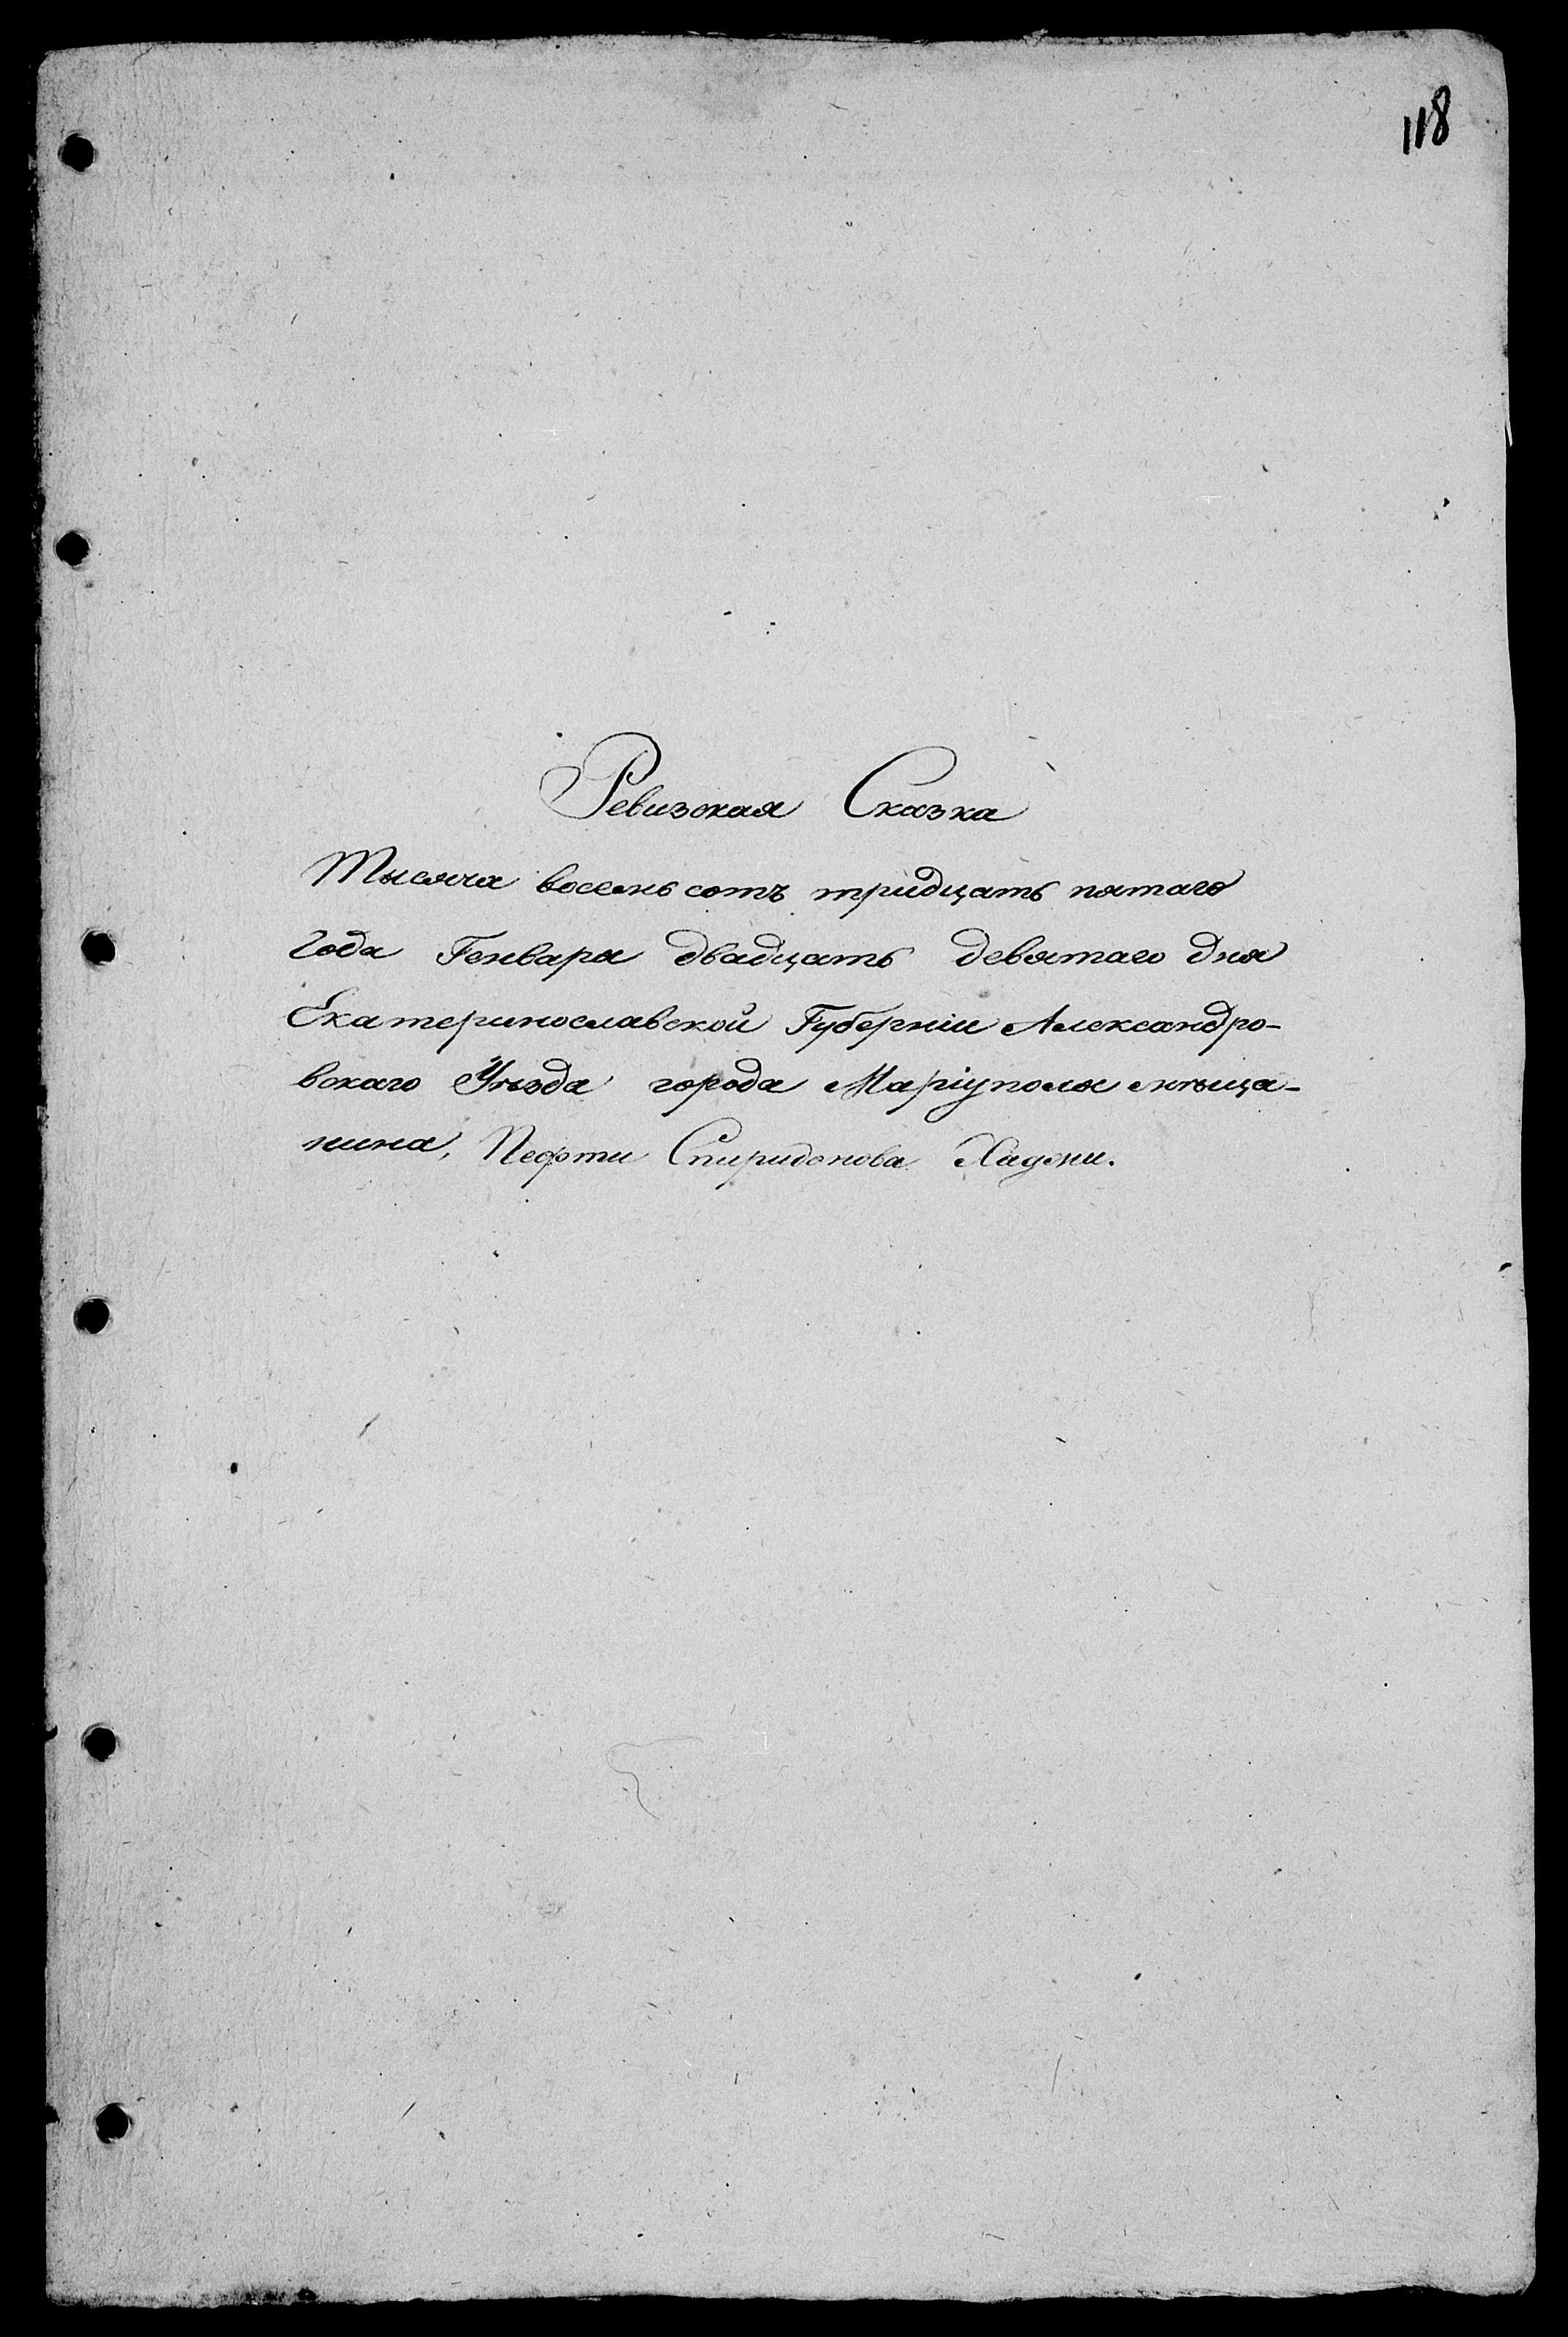 118
Ревизская Сказка
Тысяча восемьсотъ тридцать пятаго
года Генваря двадцать девятаго дня
Екатеринославской Губерніи Александро-
вскаго Уѣзда города Маріуполя мѣща-
нина, Спиридонова